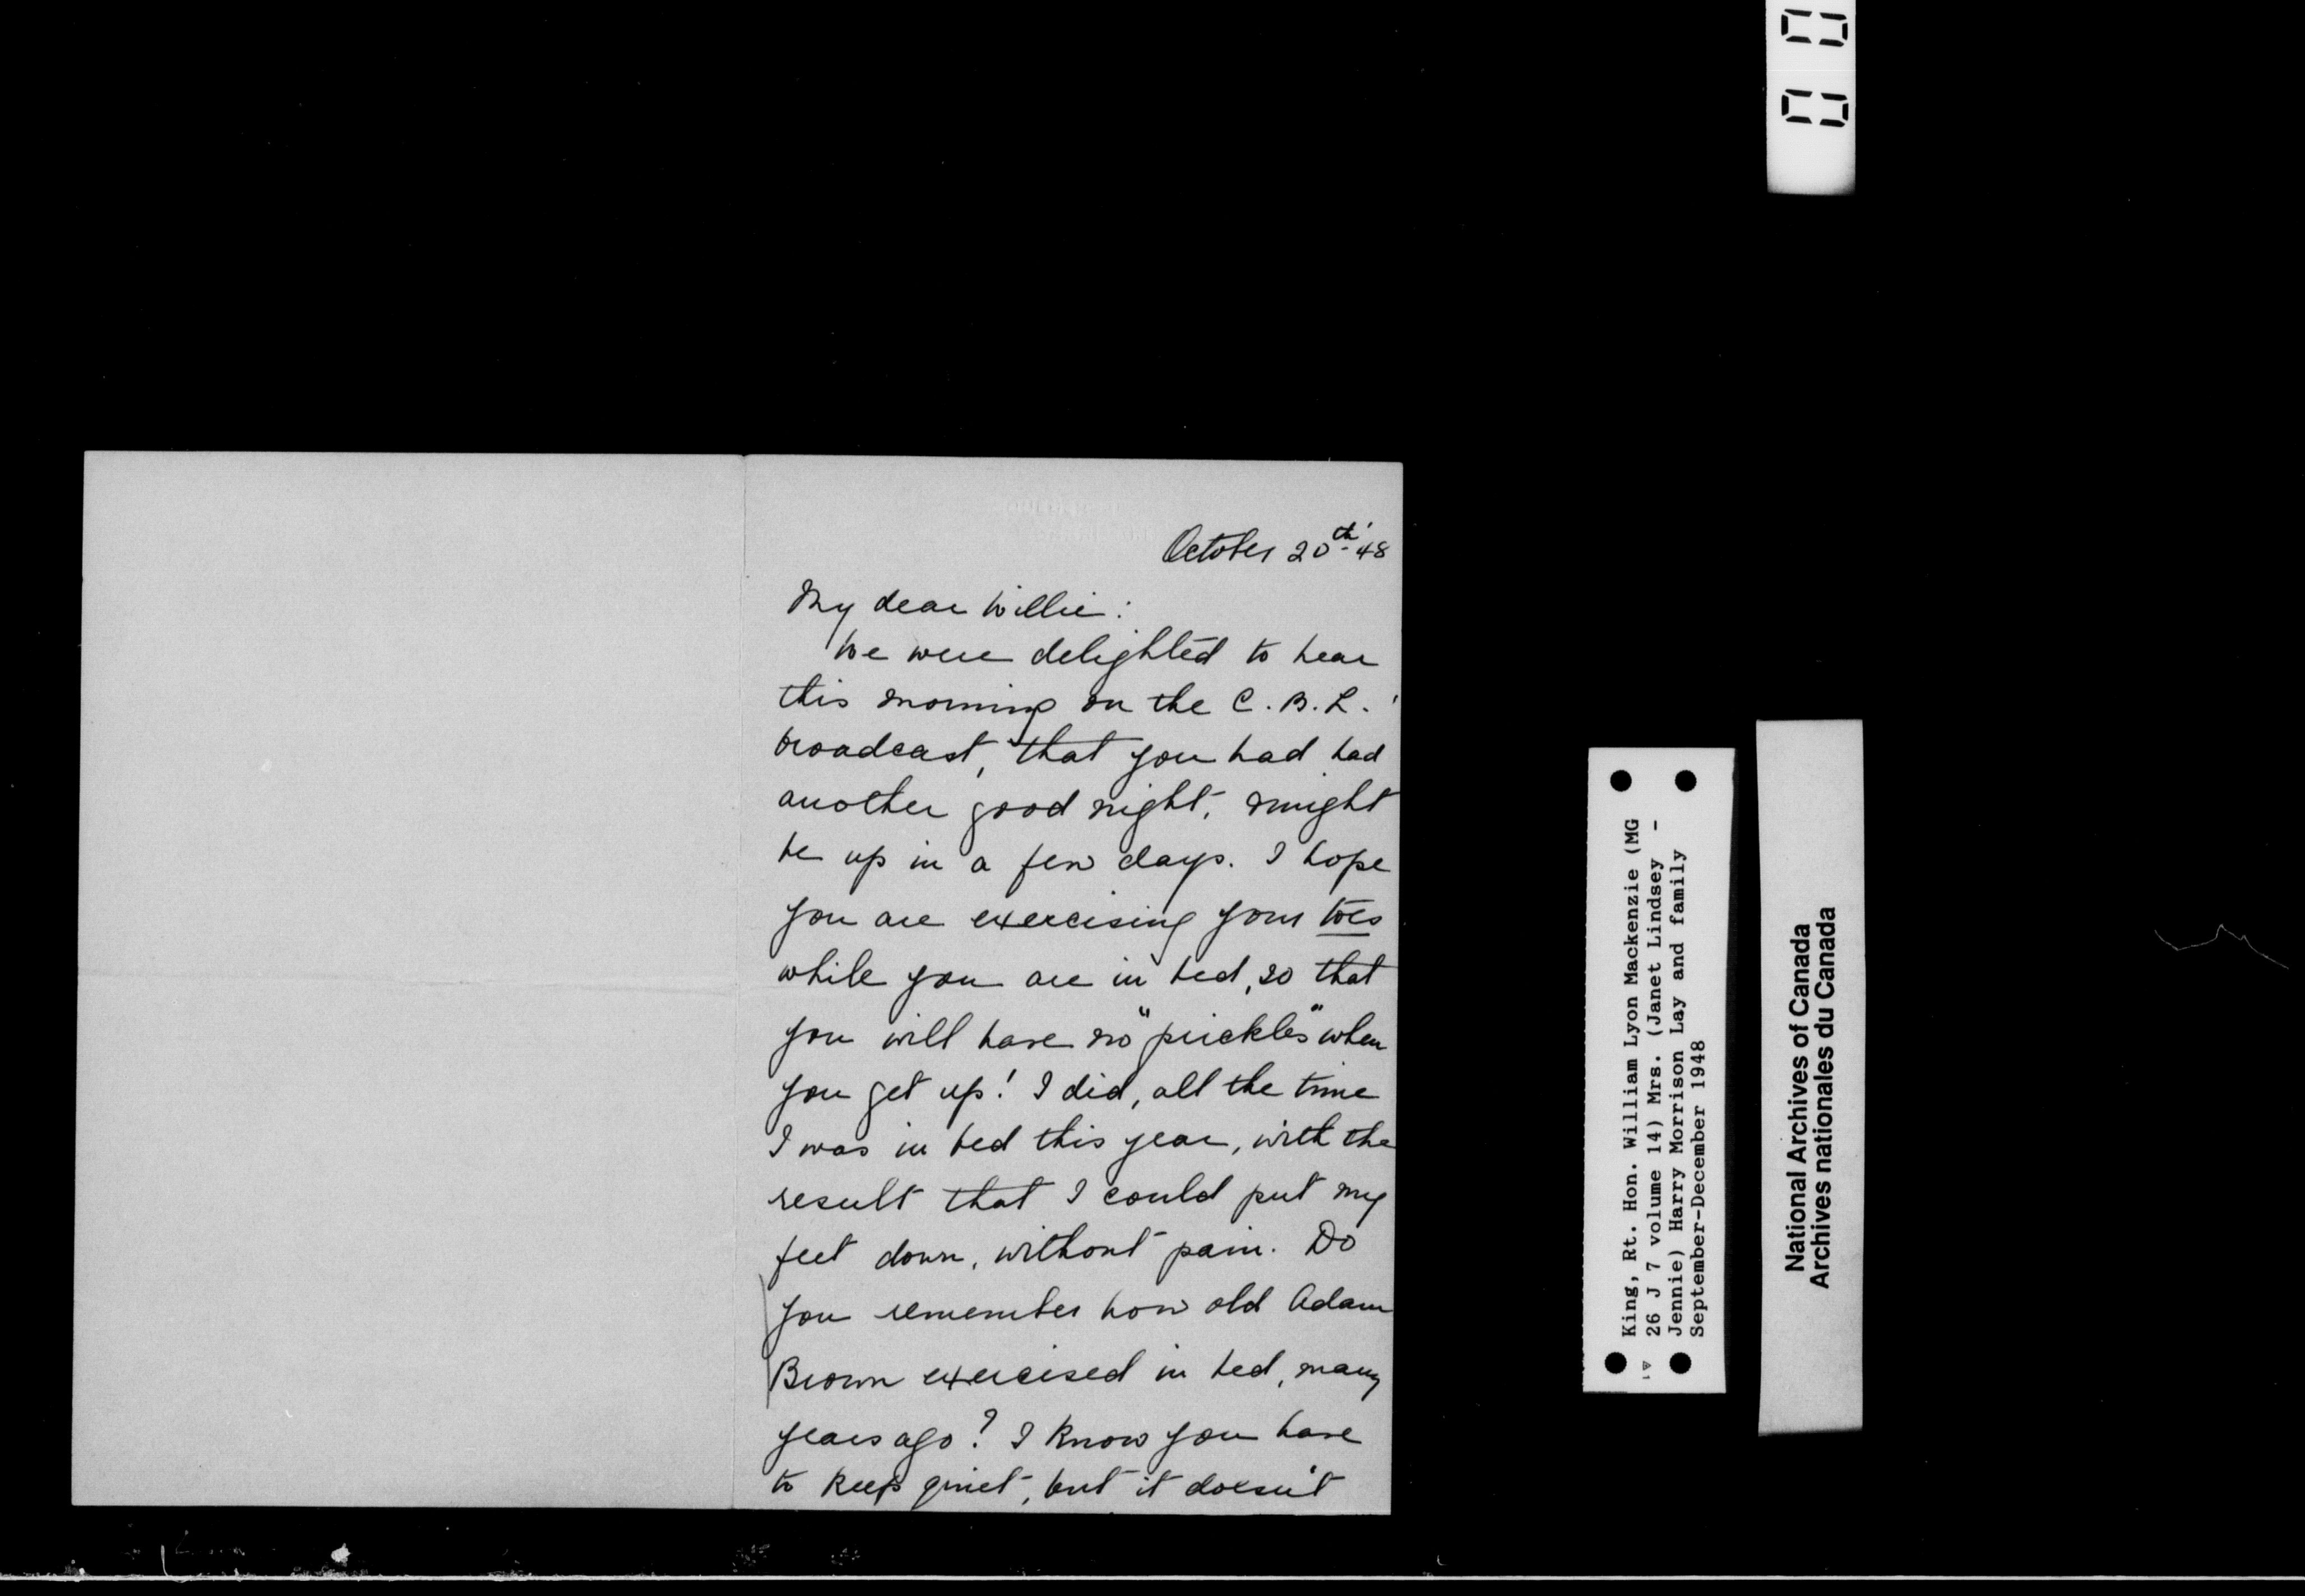 October 20th '48
My dear Willie:
We were delighted to hear
this morning on the C.B.L.
broadcast, that you had had
another good night, & might
be up in a few days. I hope
you are exercising your toes
while you are in bed, so that
you will have no "prickles" when
you get up! I did, all the time
I was in bed this year, with the
result that I could put my
feet down, without pain. Do
you remember how old Adam
Brown exercised in bed, many
years ago? I know you have
to keep quiet, but it doesn't
King, Rt. Hon. William Lyon Mackenzie (MG
26 J 7 volume 14) Mrs. (Janet Lindsey -
Jennie) Harry Morrison Lay and family
September-December 1948
National Archives of Canada
Archives nationales du Canada